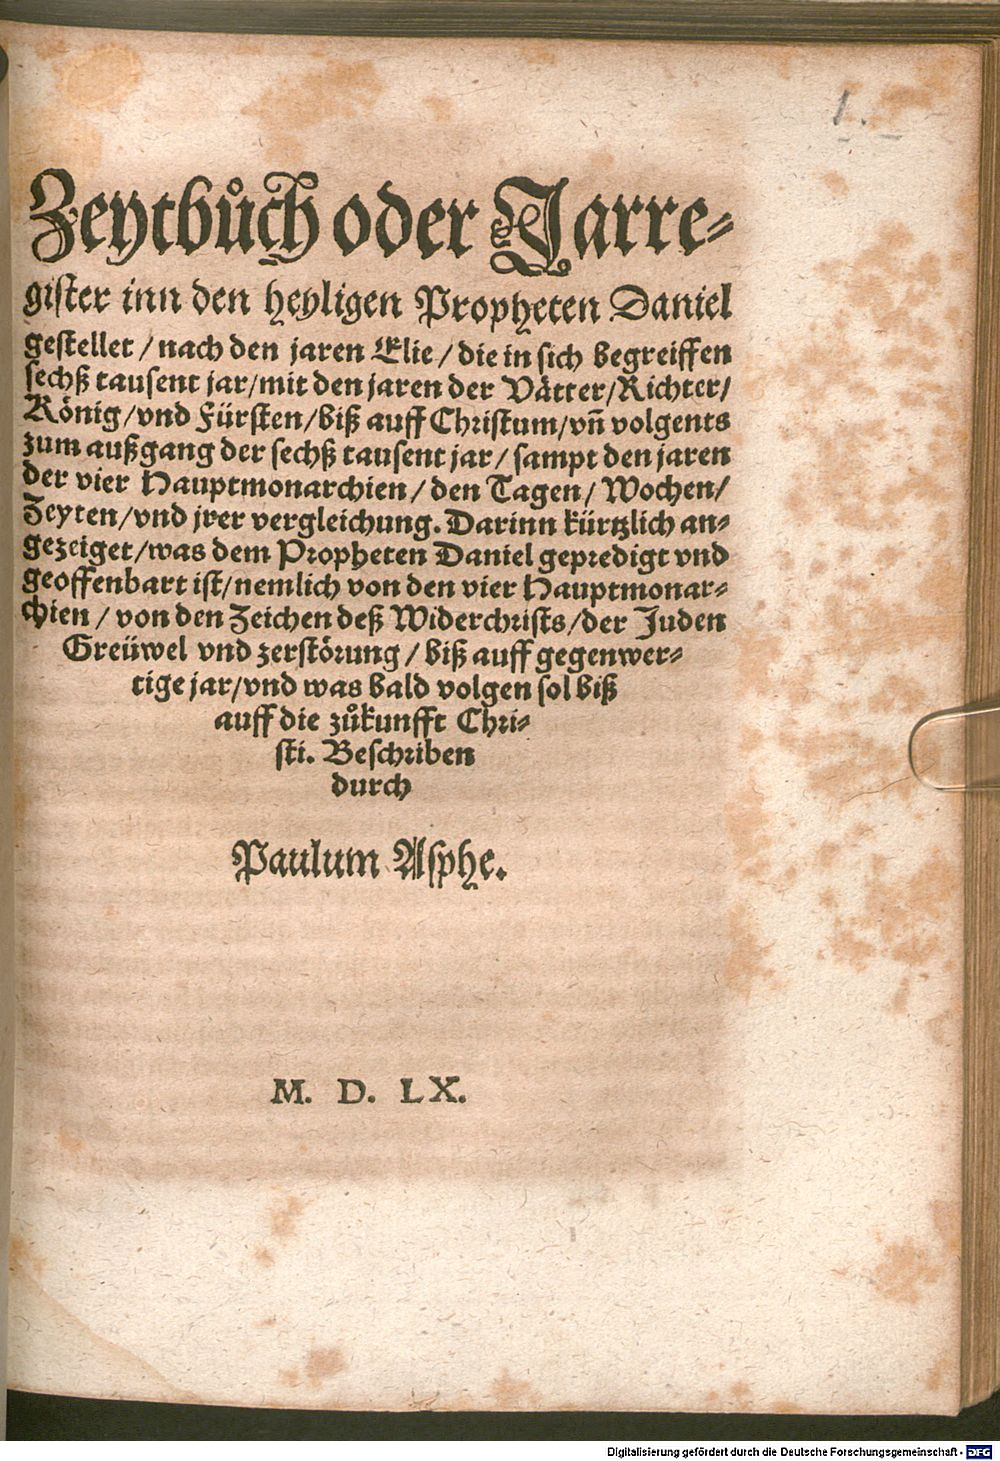 1.
Zeytbůch oder Jarre⸗
gister inn den heyligen Propheten Daniel
gestellet / nach den jaren Elie / die in sich begreiffen
sechß tausent jar / mit den jaren der Vätter / Richter /
König / vnd Fürsten / biß auff Christum / vñ volgents
zum außgang der sechß tausent jar / sampt den jaren
der vier Hauptmonarchien / den Tagen / Wochen /
Zeyten / vnd jrer vergleichung. Darinn kürtzlich an⸗
gezeiget / was dem Propheten Daniel gepredigt vnd
geoffenbart ist / nemlich von den vier Hauptmonar⸗
chien / von den Zeichen deß Widerchrists / der Juden
Greüwel vnd zerstörung / biß auff gegenwer⸗
tige jar / vnd was bald volgen sol biß
auff die zůkunfft Chri⸗
sti. Beschriben
durch
Paulum Asphe.
M. D. LX.
Digitalisierung gefördert durch die Deutsche Forschungsgemeinschaft - DFG